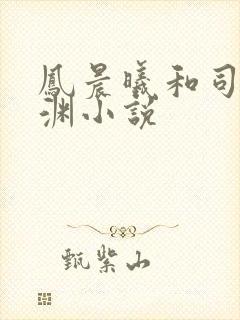 鳳晨曦和司
渊小説
甄紫山